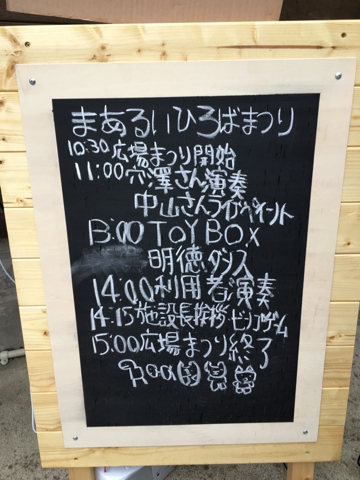 まあるいひろばまつり
10:30広場まつり開始
11:00穴澤さん演奏
中山さんライブペイント
13:00 TOY BOX
明徳ダンス
14:00利用者演奏
14:15施設長挨拶ビンゴゲーム
15:00広場まつり終了